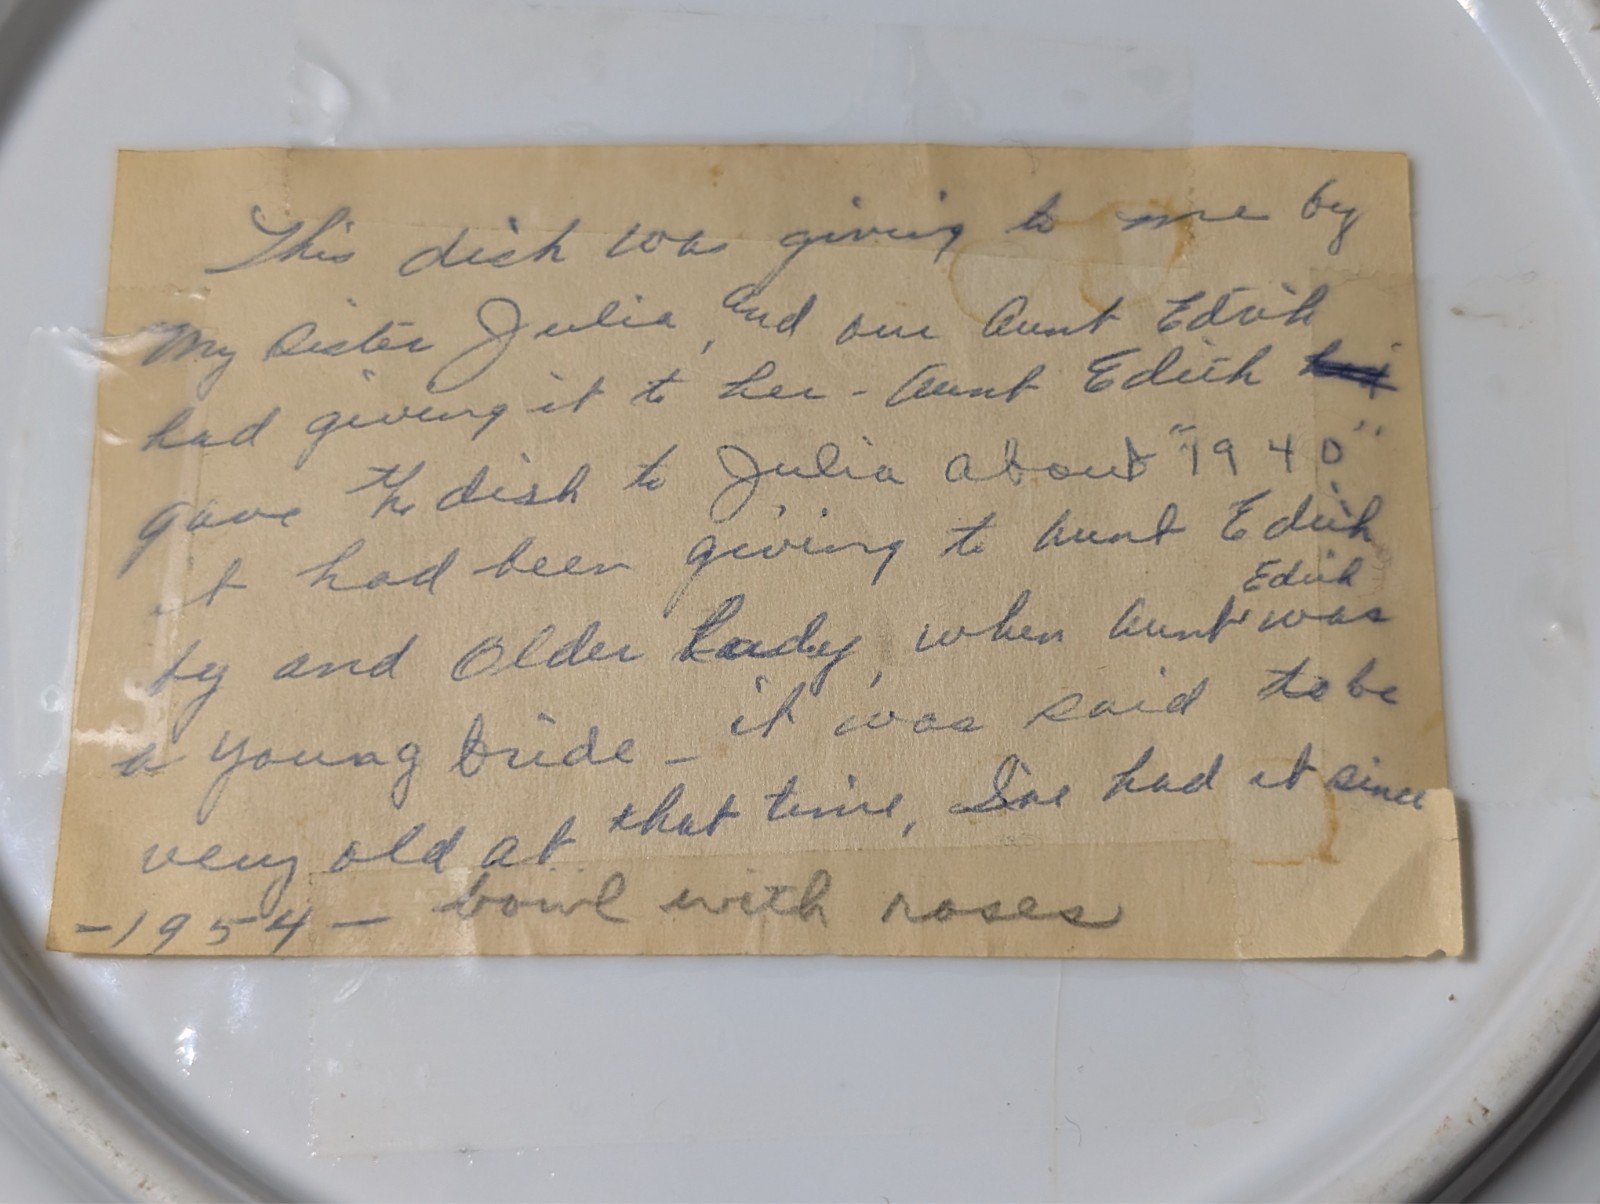 This dish was giving to me by
My sister Julia, and our Aunt Edith
had giving it to her - Aunt Edith
gave the dish to Julia about "1940"
it had been giving to Aunt Edith
by and Older Lady, when Aunt Edith was
a young bride - it was said to be
very old at that time, I've had it since
-1954- bowl with roses